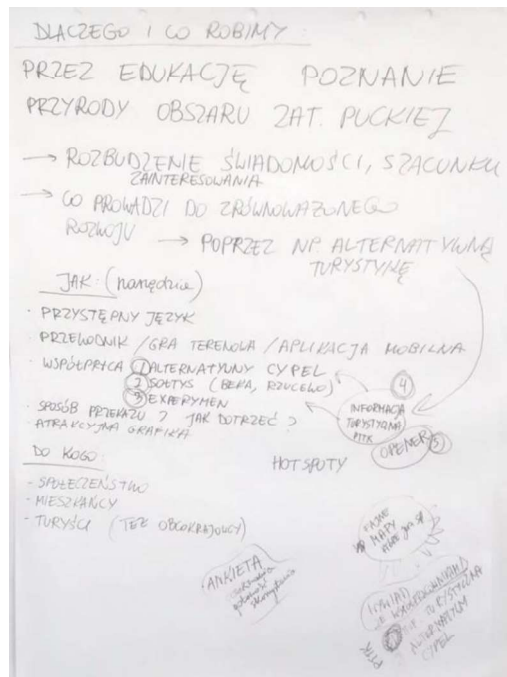 DLACZEGO I CO ROBIMY:
PRZEZ EDUKACJĘ POZNANIE
PRZYRODY OBSZARU ZAT. PUCKIEJ
→ ROZBUDZENIE ŚWIADOMOŚCI, SZACUNKU
ZAINTERESOWANIA
→ CO PROWADZI DO ZRÓWNOWAŻONEGO
ROZWOJU → POPRZEZ NP ALTERNATYWNĄ
TURYSTYKĘ
JAK: (narzędzia)
· PRZYSTĘPNY JĘZYK
· PRZEWODNIK / GRA TERENOWA / APLIKACJA MOBILNA
· WSPÓŁPRACA ① ALTERNATYWNY CYPEL
② SOŁTYS (BEKA, RZUCEWO)
③ EXPERYMEN
④ INFORMACJA
TURYSTYCZNA
PTTK
OPENER ⑤
· SPOSÓB PRZEKAZU? JAK DOTRZEĆ?
· ATRAKCYJNA GRAFIKA
HOTSPOTY
DO KOGO:
- SPOŁECZEŃSTWO
- MIESZKAŃCY
- TURYŚCI (TEŻ OBCOKRAJOWCY)
FAJNE
MAPY
ANKIETA
WYWIAD
TURYSTYCZNA
PTTK
ALTERNATYWNY
CYPEL